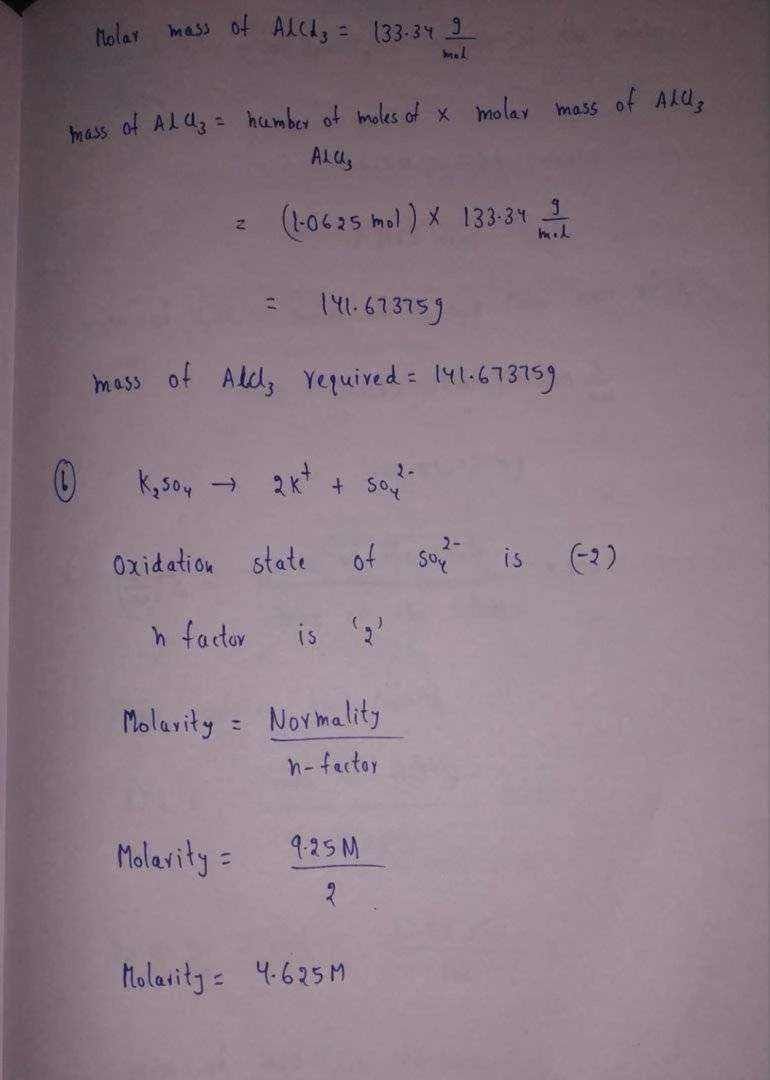 Molar mass of AlCl₃ = 133.34 g/mol
mass of AlCl₃ = number of moles of × molar mass of AlCl₃
AlCl₃
= (1.0625 mol) × 133.34 g/mol
= 141.67375g
mass of AlCl₃ required = 141.67375g
ⓑ K₂SO₄ → 2K⁺ + SO₄²⁻
Oxidation state of SO₄²⁻ is (-2)
n factor is '2'
Molarity = Normality / n-factor
Molarity = 9.25 M / 2
Molarity = 4.625 M